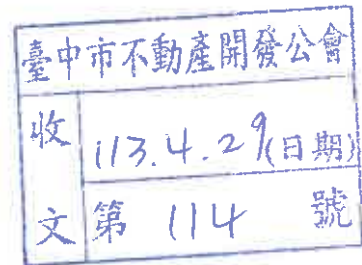 臺中市不動產開發公會
收文
113.4.29(日期)
第 114 號